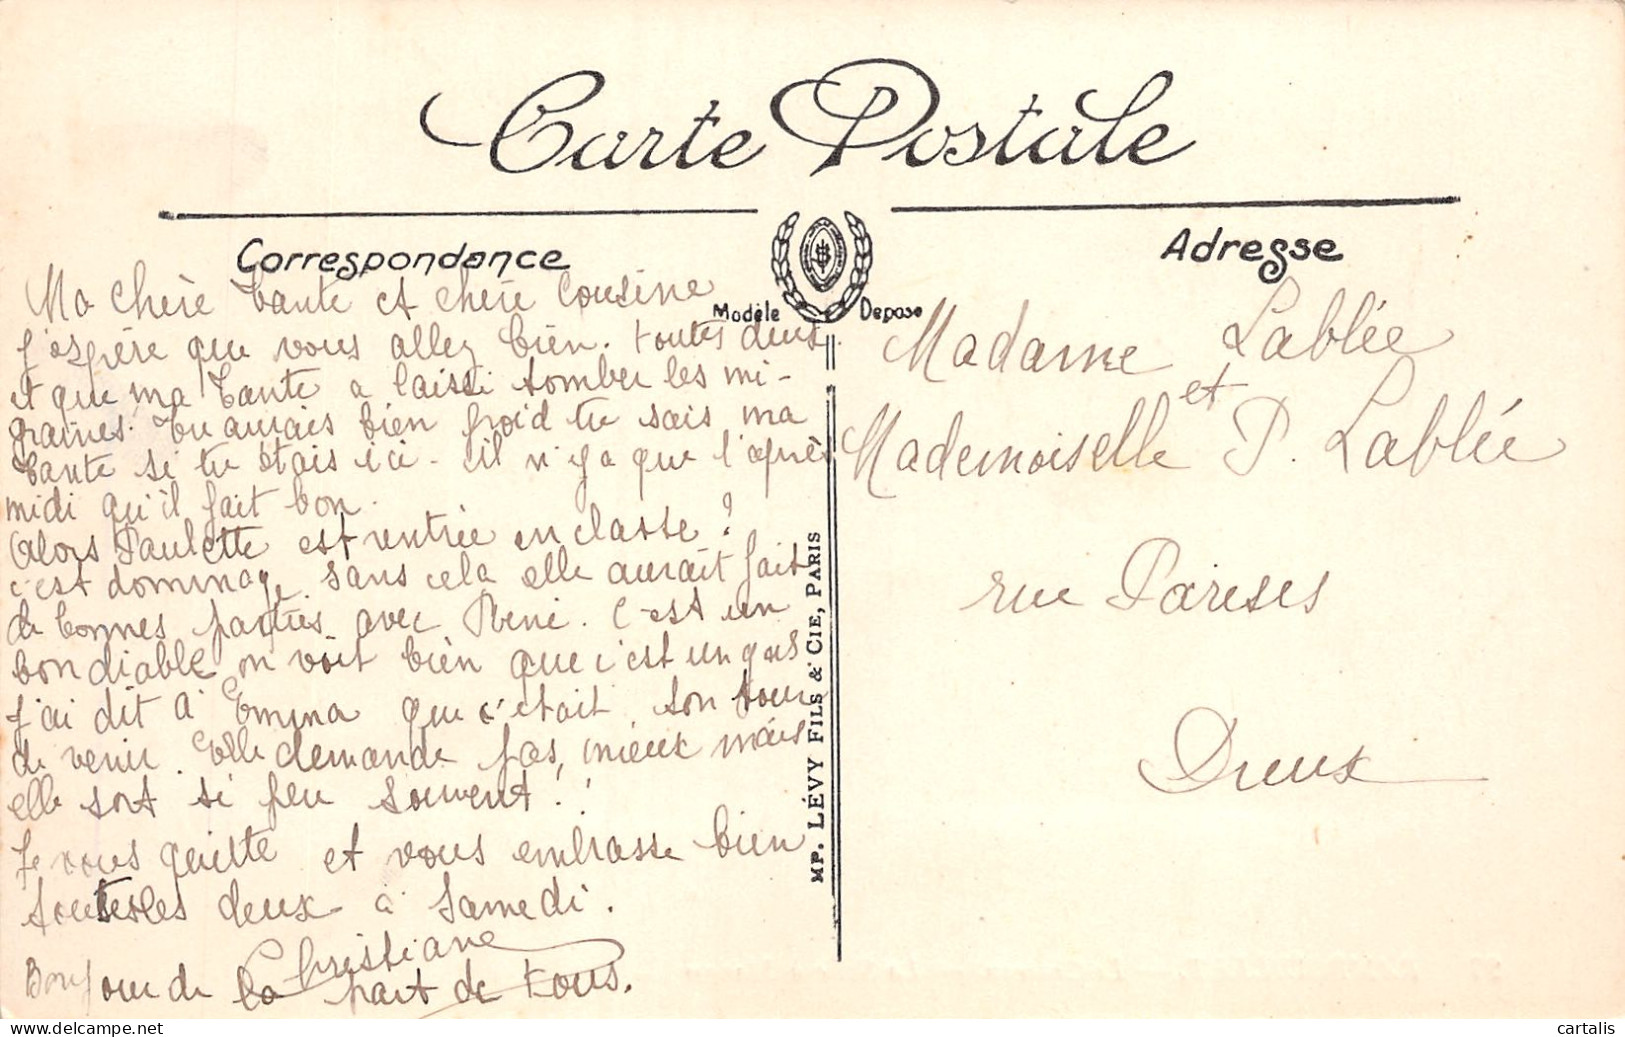 Carte Postale
Correspondance
Modèle Déposé
Adresse
Ma chère Tante et chère Cousine
J'espère que vous allez bien. toutes deux
et que ma Tante a laissé tomber les mi-
graines. Tu aurais bien froid tu sais, ma
Tante si tu étais ici - il n'y a que l'après
midi qu'il fait bon.
Alors Paulette est rentrée en classe ?
c'est dommage sans cela elle aurait fait
de bonnes parties avec René. C'est un
bon diable on voit bien que c'est un gas
J'ai dit à Emma que c'était son tour
de venir. Elle demande pas mieux mais
elle sort si peu souvent !
Je vous quitte et vous embrasse bien
toutes les deux à Samedi.
Christiane
Bonjour de la part de tous.
MP. LÉVY FILS & CIE, PARIS
Madame Lablée
et
Mademoiselle P. Lablée
rue Parisis
Dreux
www.delcampe.net
cartalis